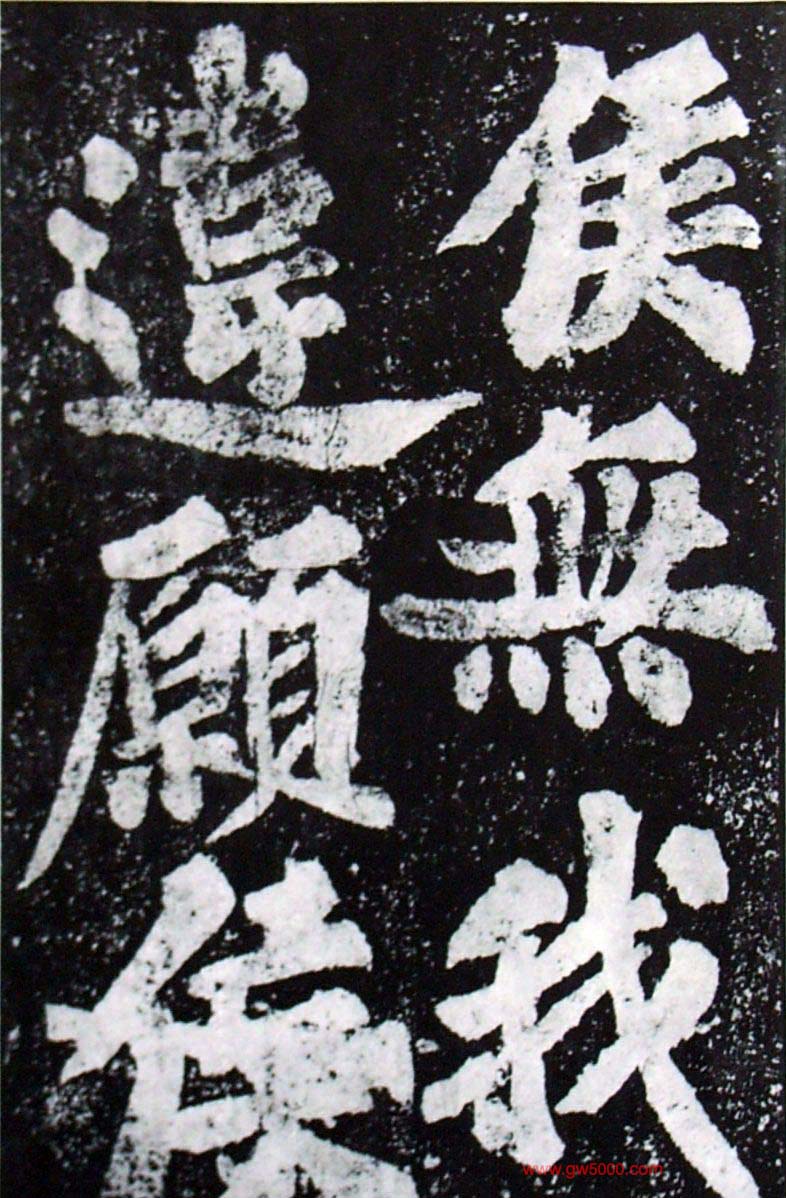 侯無我
違願侯
www.gw5000.com